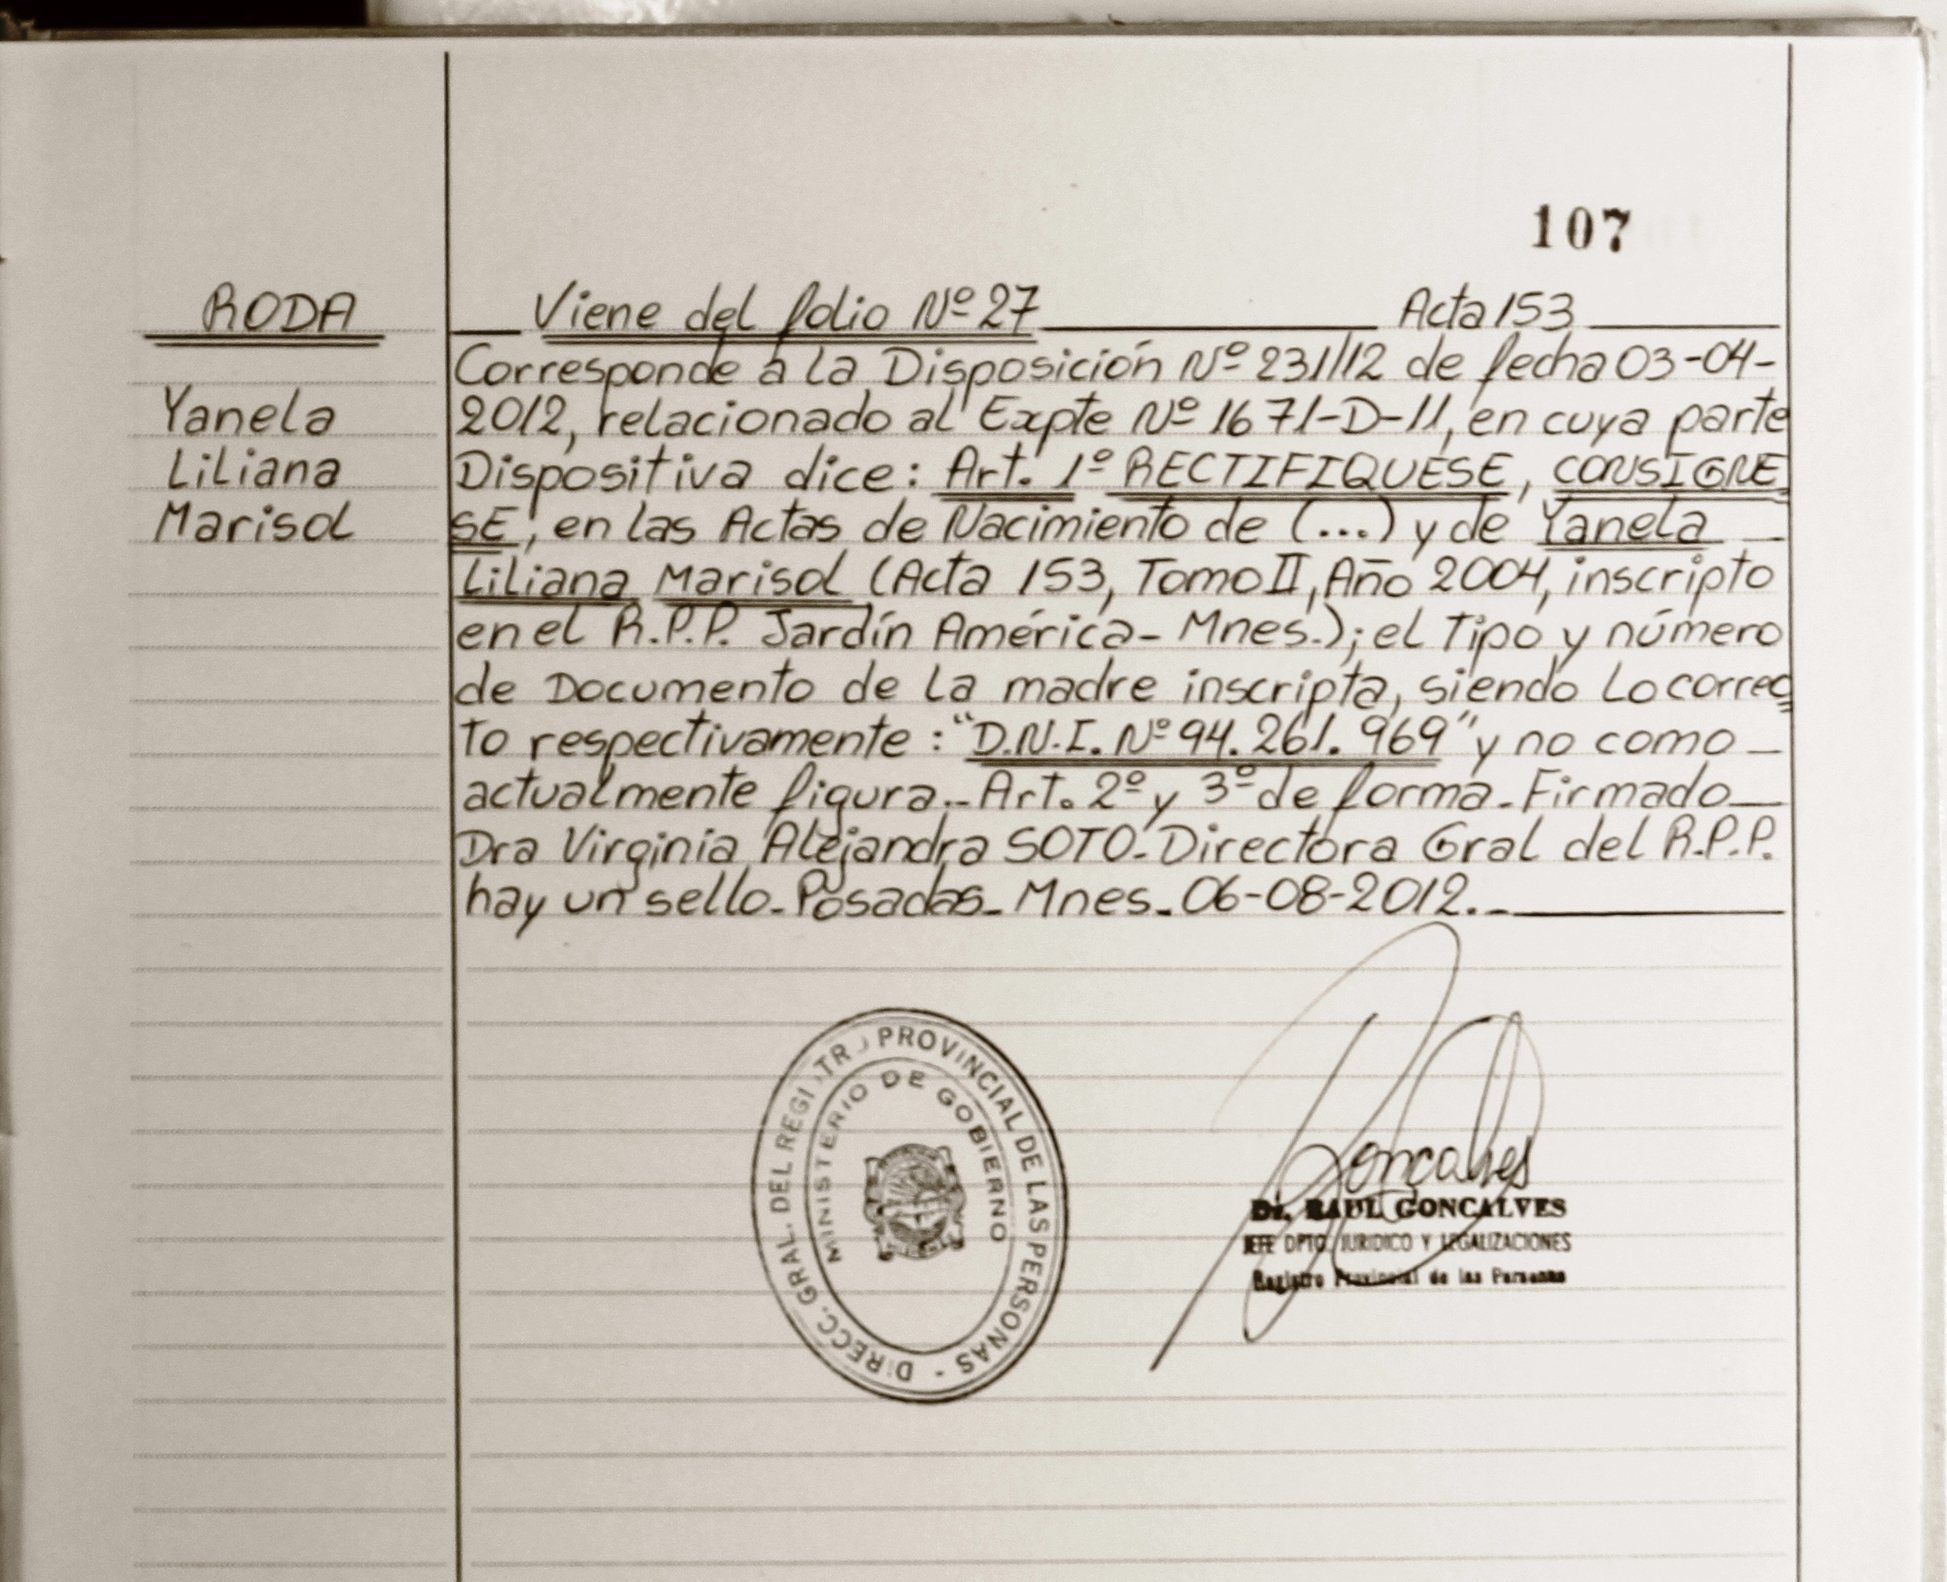 107
RODA
Yanela
Liliana
Marisol
Viene del folio Nº 27 Acta 153
Corresponde a la Disposición Nº 231/12 de fecha 03-04-
2012, relacionado al Expte Nº 1671-D-11, en cuya parte
Dispositiva dice: Art. 1º RECTIFIQUESE, CONSIGNE
SE, en las Actas de Nacimiento de (...) y de Yanela
Liliana Marisol (Acta 153, Tomo II, Año 2004, inscripto
en el R.P.P. Jardín América- Mnes.); el Tipo y número
de Documento de la madre inscripta, siendo lo correc
to respectivamente: "D.N.I. Nº 94.261.969" y no como
actualmente figura.- Art. 2º y 3º de forma - Firmado
Dra Virginia Alejandra SOTO - Directora Gral del R.P.P.
hay un sello - Posadas - Mnes. 06-08-2012.-
DIRECC. GRAL. DEL REGISTRO PROVINCIAL DE LAS PERSONAS -
MINISTERIO DE GOBIERNO
Goncalves
Dr. RAUL GONCALVES
JEFE DPTO. JURIDICO Y LEGALIZACIONES
Registro Provincial de las Personas